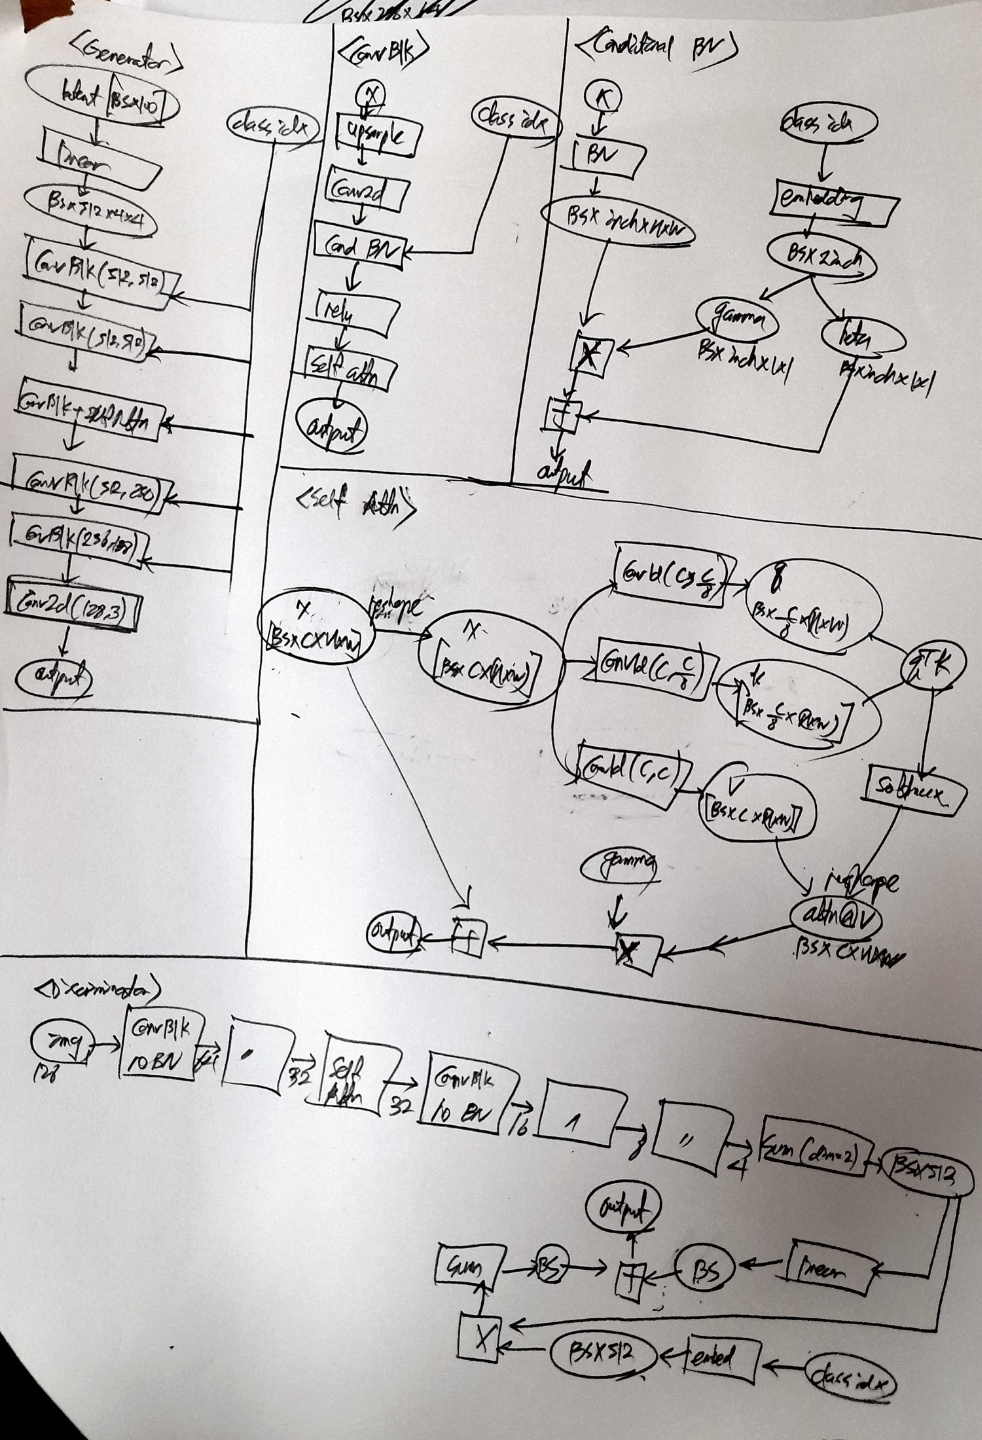 <Generator>
latent [BSx100]
linear
BSx512x4x4
ConvBlk(512,512)
ConvBlk(512,512)
ConvBlk + Self Attn
ConvBlk(512,256)
ConvBlk(256,128)
Conv2d(128,3)
output
class idx
<ConvBlk>
x
upsample
Conv2d
Cond BN
relu
Self attn
output
class idx
<Conditional BN>
x
BN
BSx inch x H x W
X
+
output
class idx
embedding
BSx2inch
gamma
BSx inch x 1x1
beta
BSx inch x 1x1
<Self Attn>
x
[BSxCxHxW]
reshape
x
[BSxCx(HxW)]
Conv1d(C, C/8)
q
BSx C/8 x(HxW)
Conv1d(C, C/8)
k
[BSx C/8 x(HxW)]
qTK
Conv1d(C,C)
V
[BSxCx(HxW)]
softmax
reshape
attn@V
BSxCxHxW
gamma
X
+
output
<Discriminator>
img
128
ConvBlk
no BN
64
"
32
Self
Attn
32
ConvBlk
no BN
16
"
8
"
4
Sum(dim=2)
BSx512
output
sum
BS
+
BS
linear
X
BSx512
embed
class idx